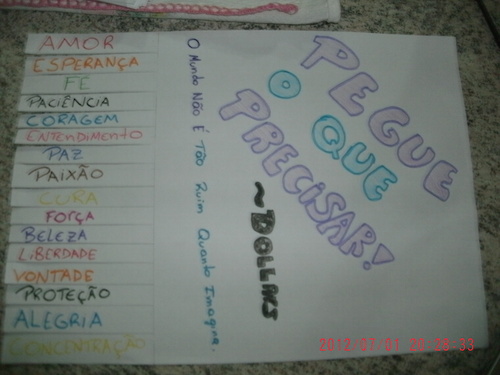 AMOR
ESPERANÇA
FÉ
PACIÊNCIA
CORAGEM
ENTENDIMENTO
PAZ
PAIXÃO
CURA
FORÇA
BELEZA
LIBERDADE
VONTADE
PROTEÇÃO
ALEGRIA
CONCENTRAÇÃO
O Mundo Não É Tão Ruim Quanto Imagina.
PEGUE
O QUE
PRECISAR!
~DOLLARS
2012-07-01 20:28:33